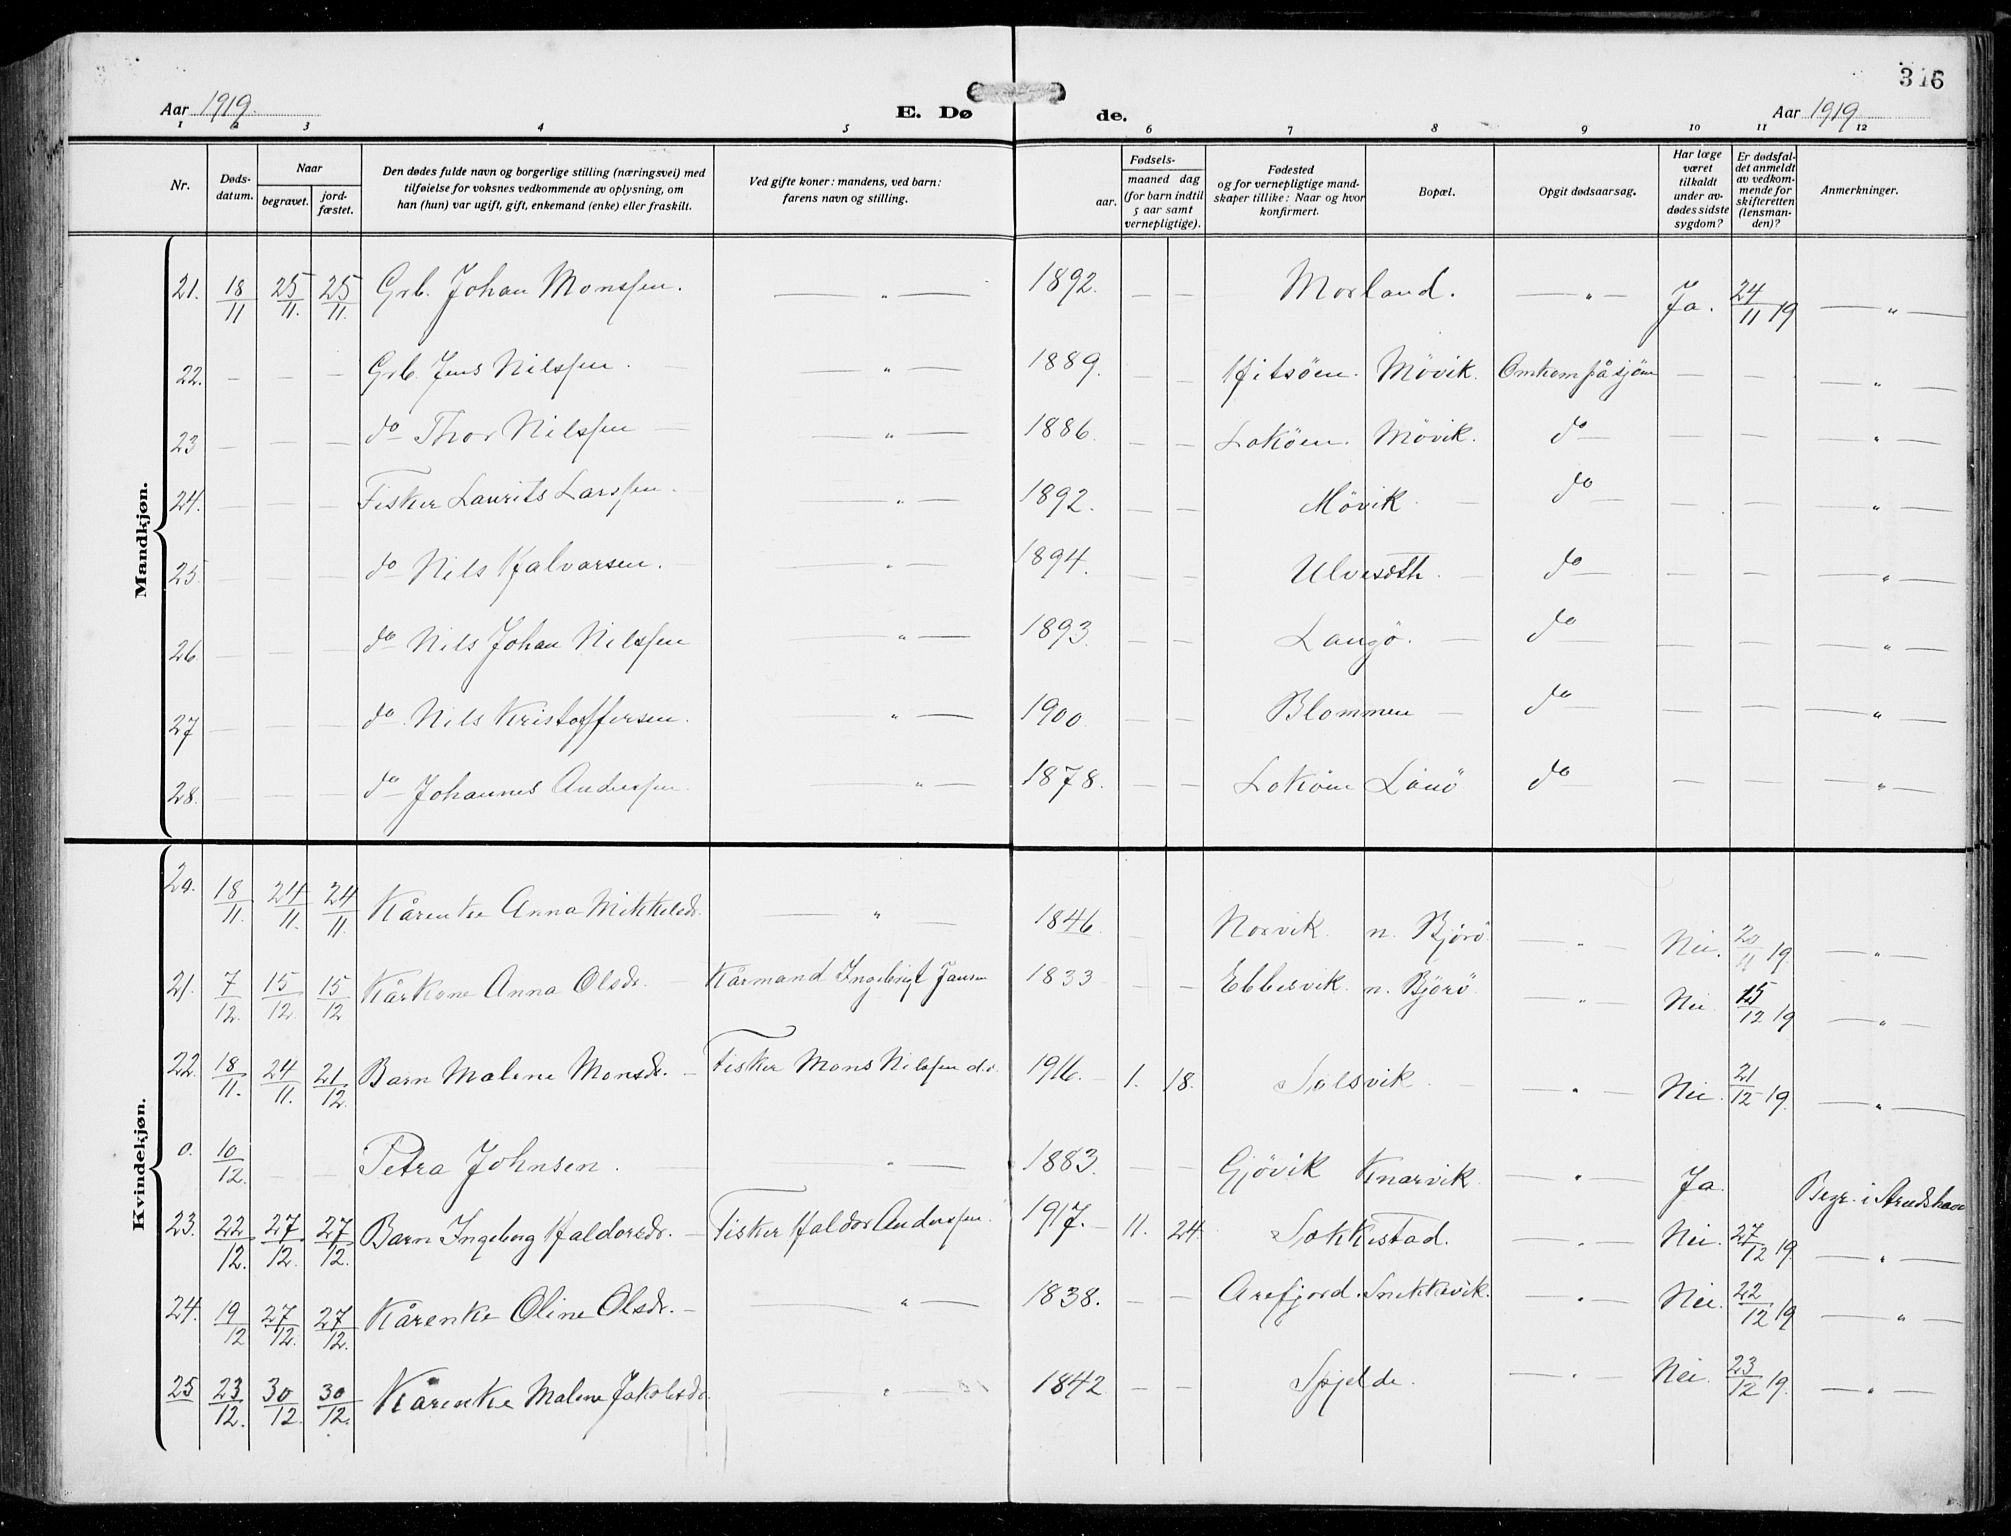 316
Aar 1919. E. Dø de. Aar 1919
1 2 3 4 5 6 7 8 9 10 11 12
Nr. Døds-datum. Naar begravet. jord-fæstet. Den dødes fulde navn og borgerlige stilling (næringsvei) med tilføielse for voksnes vedkommende av oplysning, om han (hun) var ugift, gift, enkemand (enke) eller fraskilt. Ved gifte koner: mandens, ved barn: farens navn og stilling. Fødsels- aar. maaned dag (for barn indtil 5 aar samt vernepligtige). Fødested og for vernepligtige mand-skaper tillike: Naar og hvor konfirmert. Bopæl. Opgit dødsaarsag. Har læge været tilkaldt under av-dødes sidste sygdom? Er dødsfal-det anmeldt av vedkom-mende for skifteretten (lensman-den)? Anmerkninger.
Mandkjøn.
21. 18/11 25/11. 25/11. Grb. Johan Monssen. — " — 1892. — — Morland. — " — Ja. 24/11 19 — " —
22. — — — Grb. Jens Nilssen. — — " — 1889. — — Hitsöen. Mövik. Omkom på sjöen — — "
23 — — — do Thor Nilssen — — " — 1886. — — Loköen. Mövik. do — — — "
24. — — — Fisker Laurits Larssen. — " — 1892. — — Mövik — do — — — "
25. — — — do Nils Halvorsen. — " — 1894. — — Ulvesæth. — do — — — "
26. — — — do Nils Johan Nilssen — " — 1893. — — Langö. — do — — — "
27 — — — do Nils Kristoffersen. — " — 1900. — — Blommen — do — — — "
28. — — — do Johannes Anderssen. — " — 1878. — — Loköen Lönö do — — — "
Kvindekjøn.
20. 18/11. 24/11. 24/11. Kårenke Anna Mikkelsdr. — " — 1846. — Norvik n. Bjorö. — " — Nei. 20/11 19. — " —
21. 7/12. 15/12. 15/12 Kårkone Anna Olsdr. — Kårmand Ingebrigt Jansen 1833 — — Ebbesvik. n. Björö — " — Nei 15/12 19 — " —
22. 18/11. 24/11. 21/12. Barn Malene Monsdr. — Fisker Mons Nilssen 1916. — 1. 18. Solsvik. — — " — Nei. 21/12 19. — " —
0. 10/12. — — Petra Johnsen. — — " — 1883. — — Gjövik Knarvik — " — Ja. Begr. i
23. 22/12. 27/12. 27/12. Barn Ingeborg Haldorsdr. — Fisker Haldor Anderssen. 1917. — 11. 24. Sokkestad. — " — Nei. 27/12 19. — " —
24. 19/12 27/12. 27/12. Kårenke Oline Olsdr. — — " — 1838. — — Arefjord. Snekkevik. — " — Nei. 22/12 19 — " —
25 23/12. 30/12. 30/12. Kårenke Malene Jakobsdr. — " — 1842 — — Spjelde. — " — Nei. 23/12 19. — " —